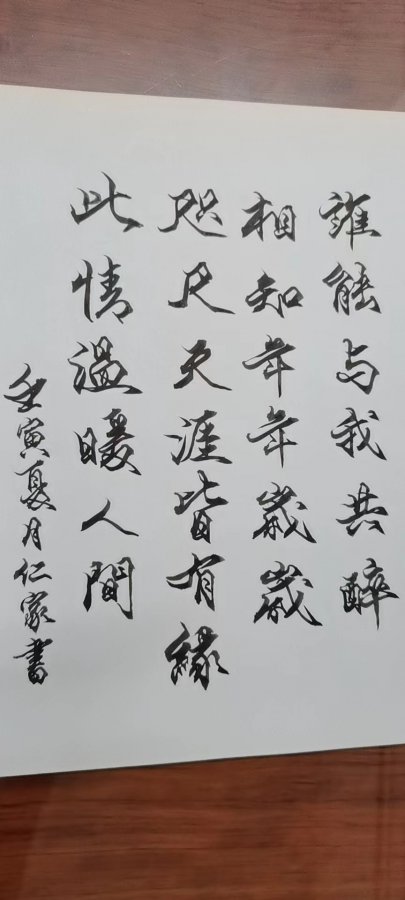 誰能与我共醉
相知年年歲歲
咫尺天涯皆有緣
此情溫暖人間
壬寅夏月仁家書